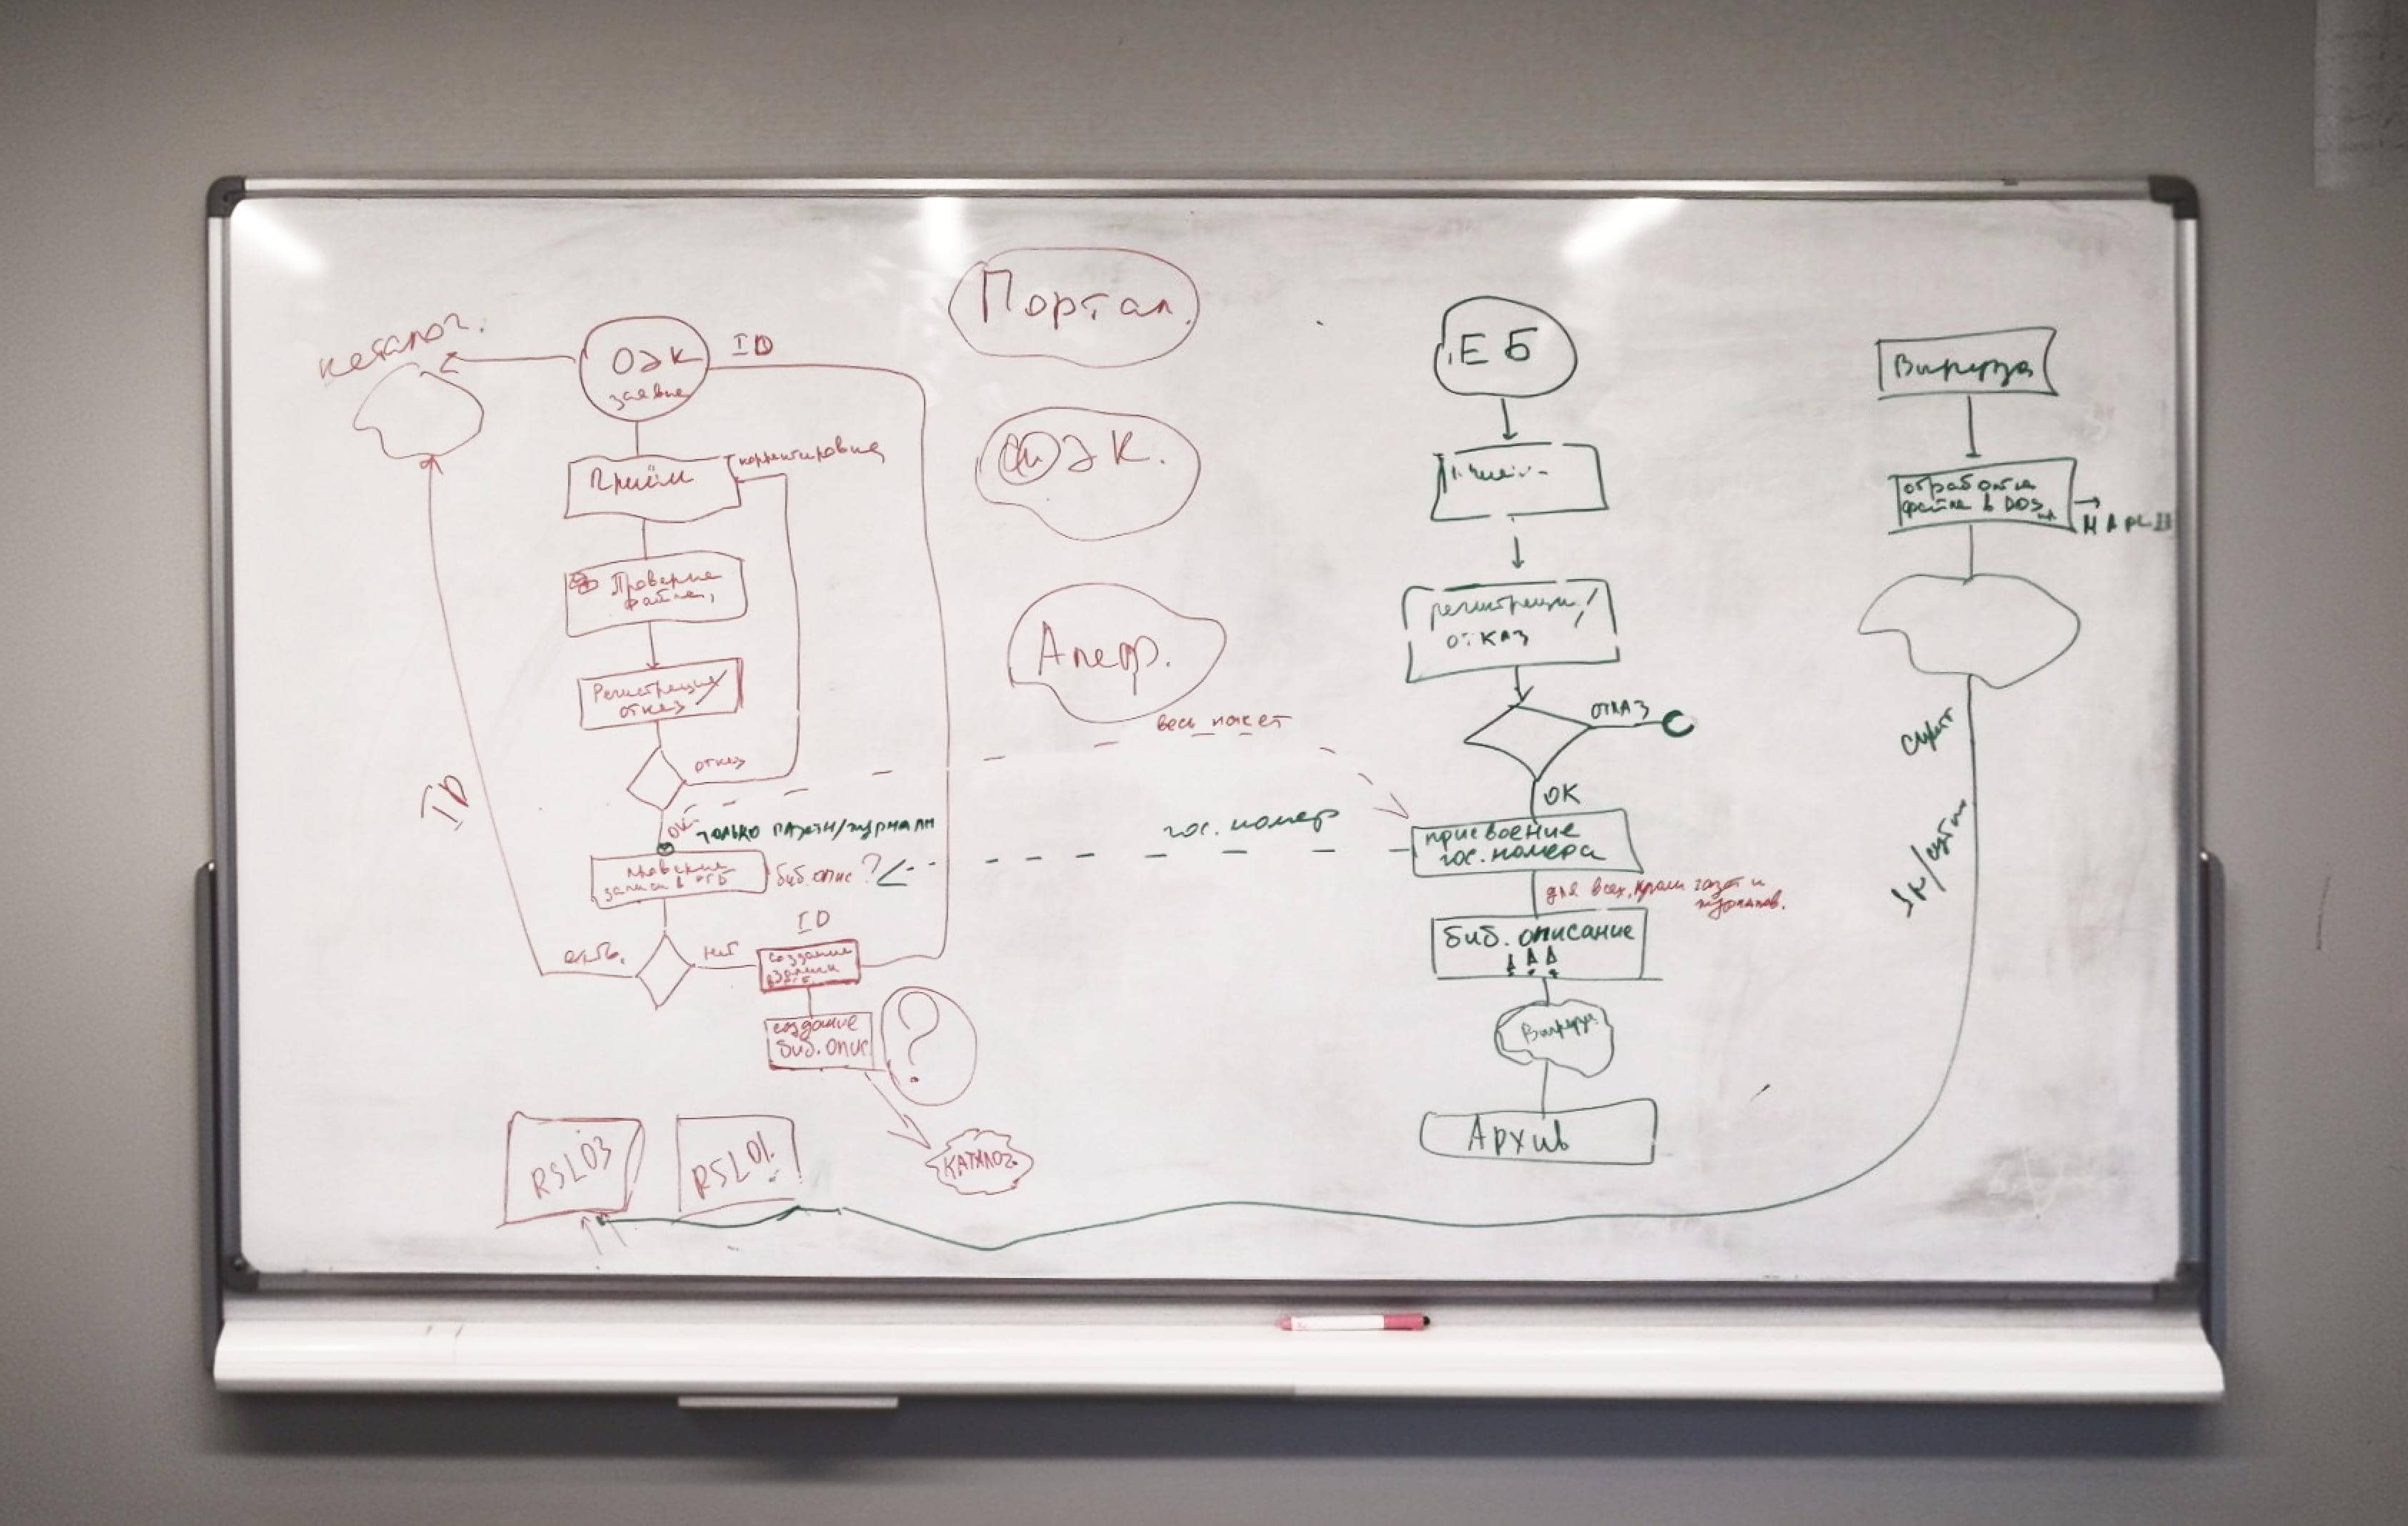 Портал.
каталог.
ОЭК
заявка
ID
ЕБ
Выгрузка
ОЭК.
корректировка
Приём
обработка
файла в DOS
Проверка
файлов,
регистрация/
отказ
Регистрация/
отказ
весь пакет
отказ
отказ
ID
ОК
ОК
только газеты/журналы
гос. номер
присвоение
гос. номера
проверка
записи в РГБ
биб. опис?
для всех, кроме газет и
журналов.
ID
биб. описание
есть.
нет
создание
записи
создание
биб. опис.
?
Выгрузка
Архив
RSL03
RSL01.
каталог.